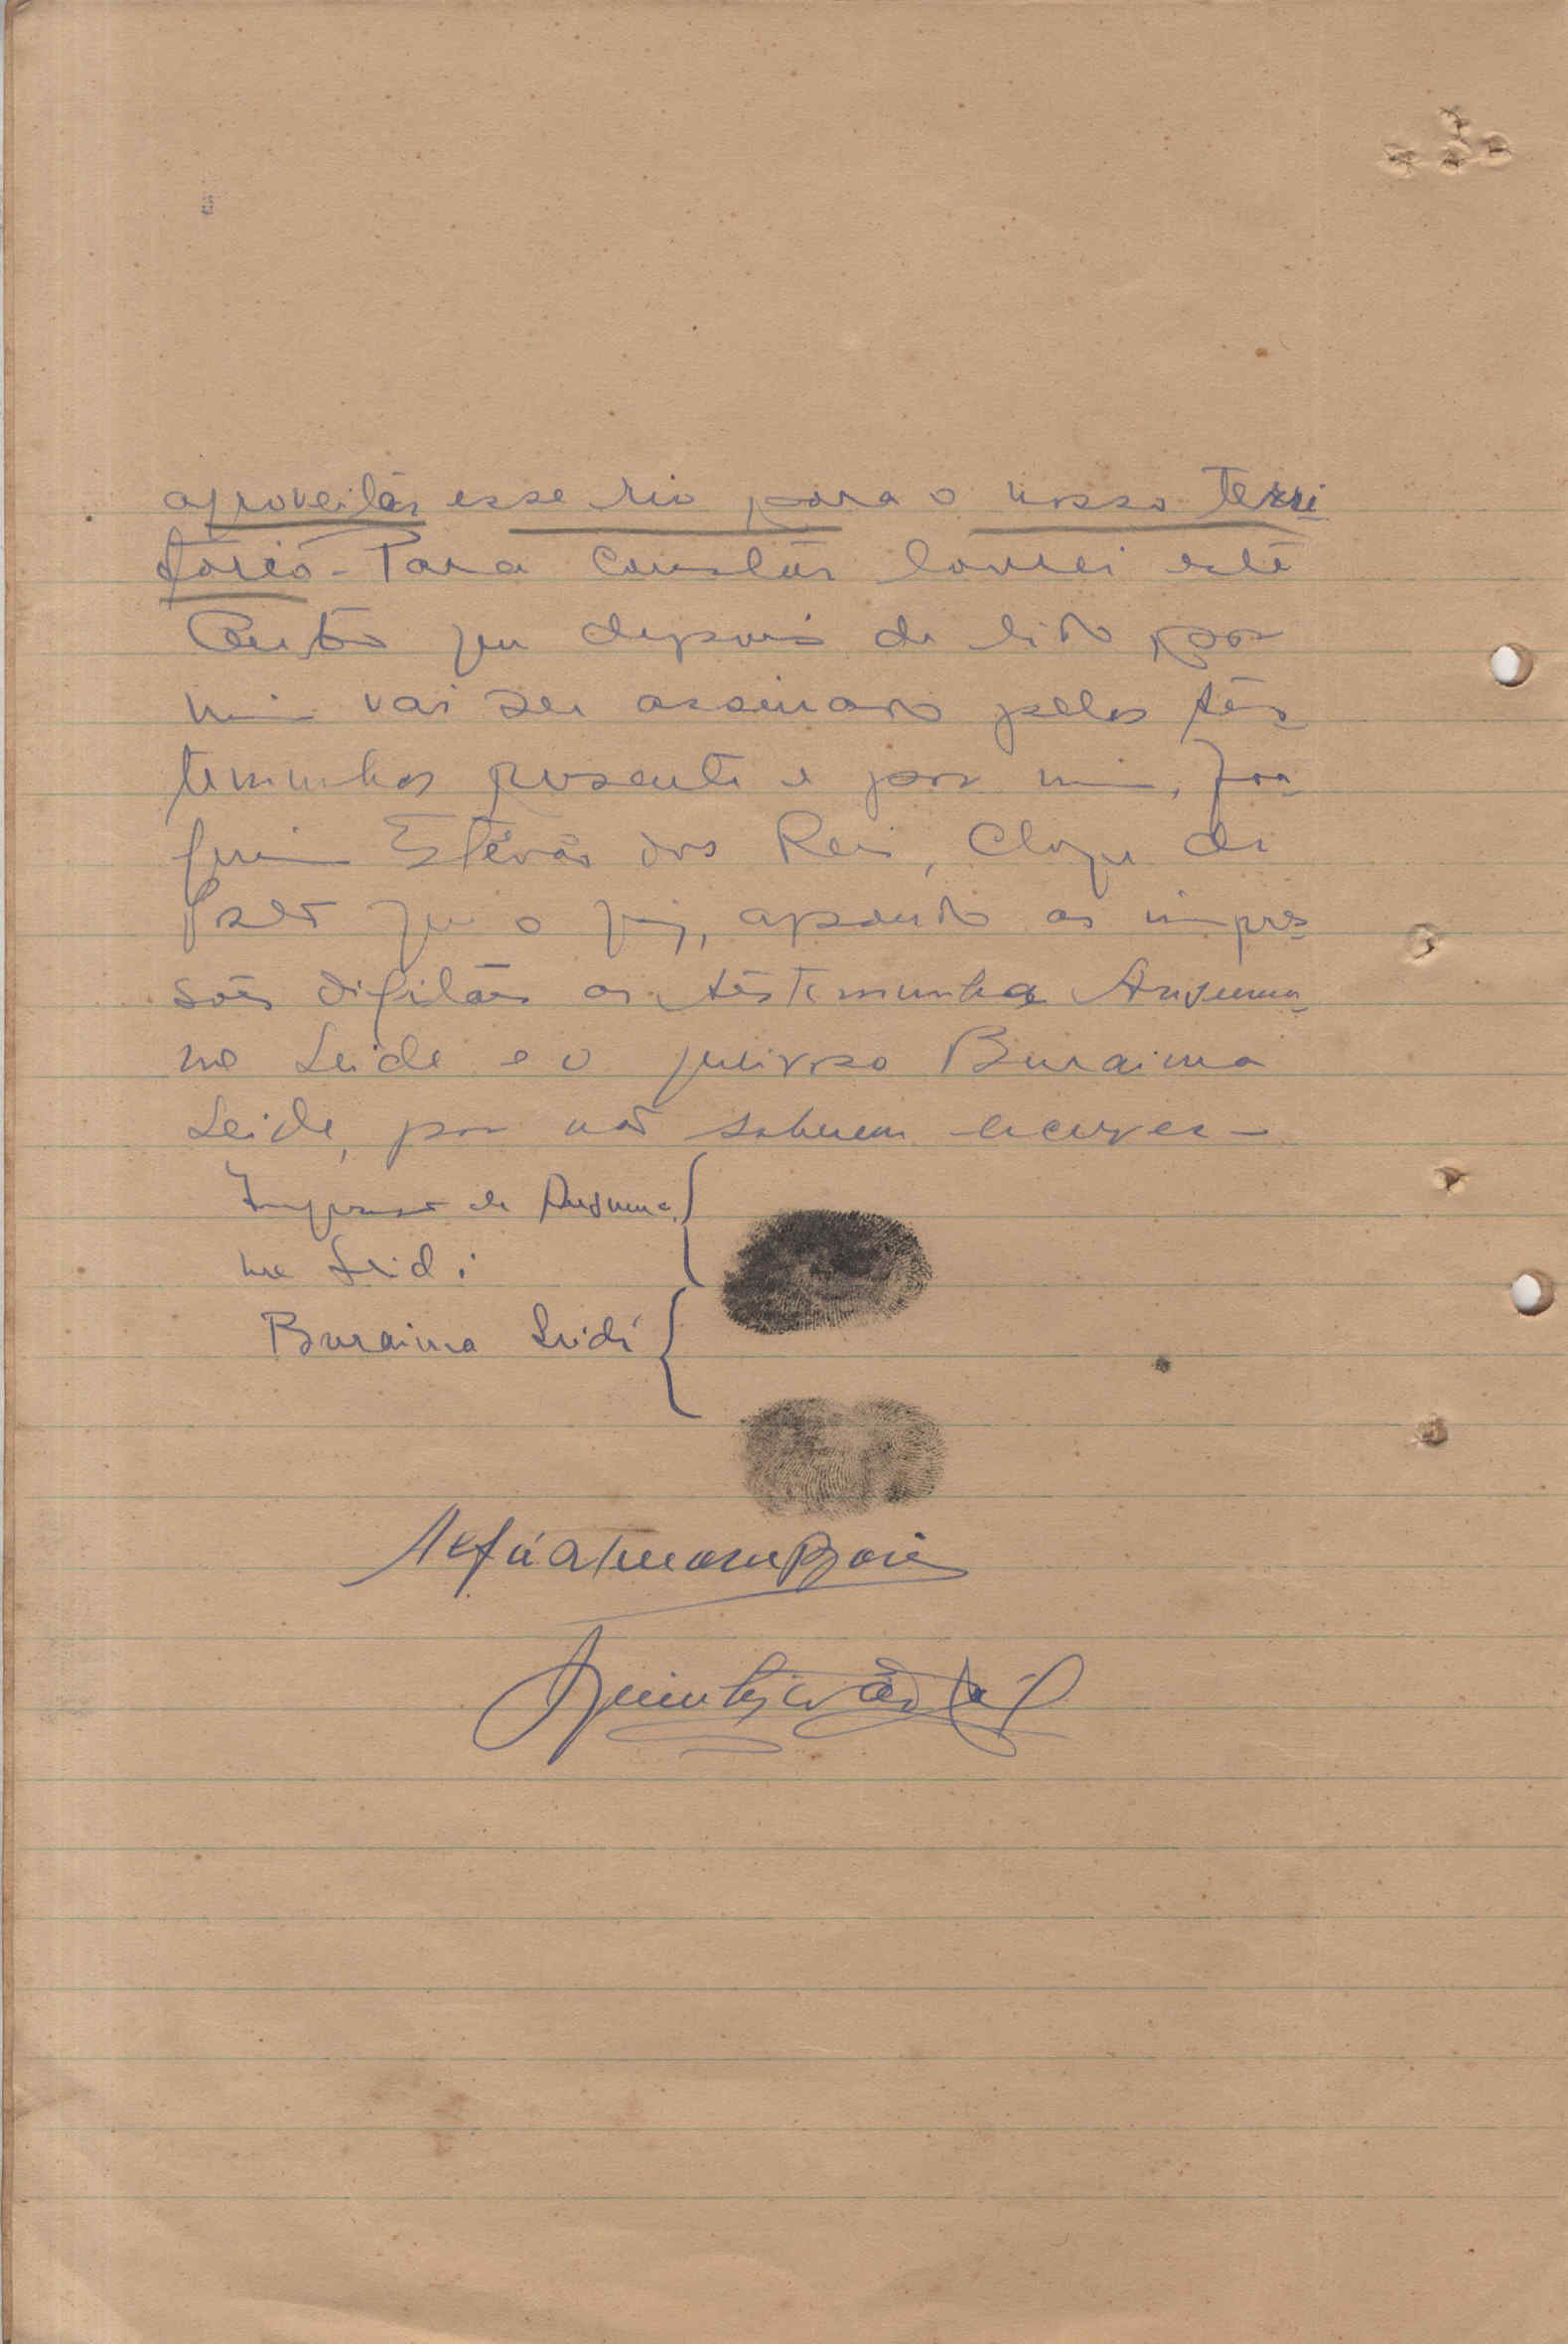 aproveitár esse rio para o nosso Terri
tório - Para constár lavrei este
Auto que depois de lido por
mim vai ser assinado pelas tês-
temunhas presente e por mim, Joa-
quim Estêvão dos Reis, Chefe de
Posto que o fiz, apondo as impres-
sões digitáes as têstemunha
ne Leide e o preiroso Buraima
Leide, por não saberem escrever -
Impressão de
ne Leidi
Buraima Leidi